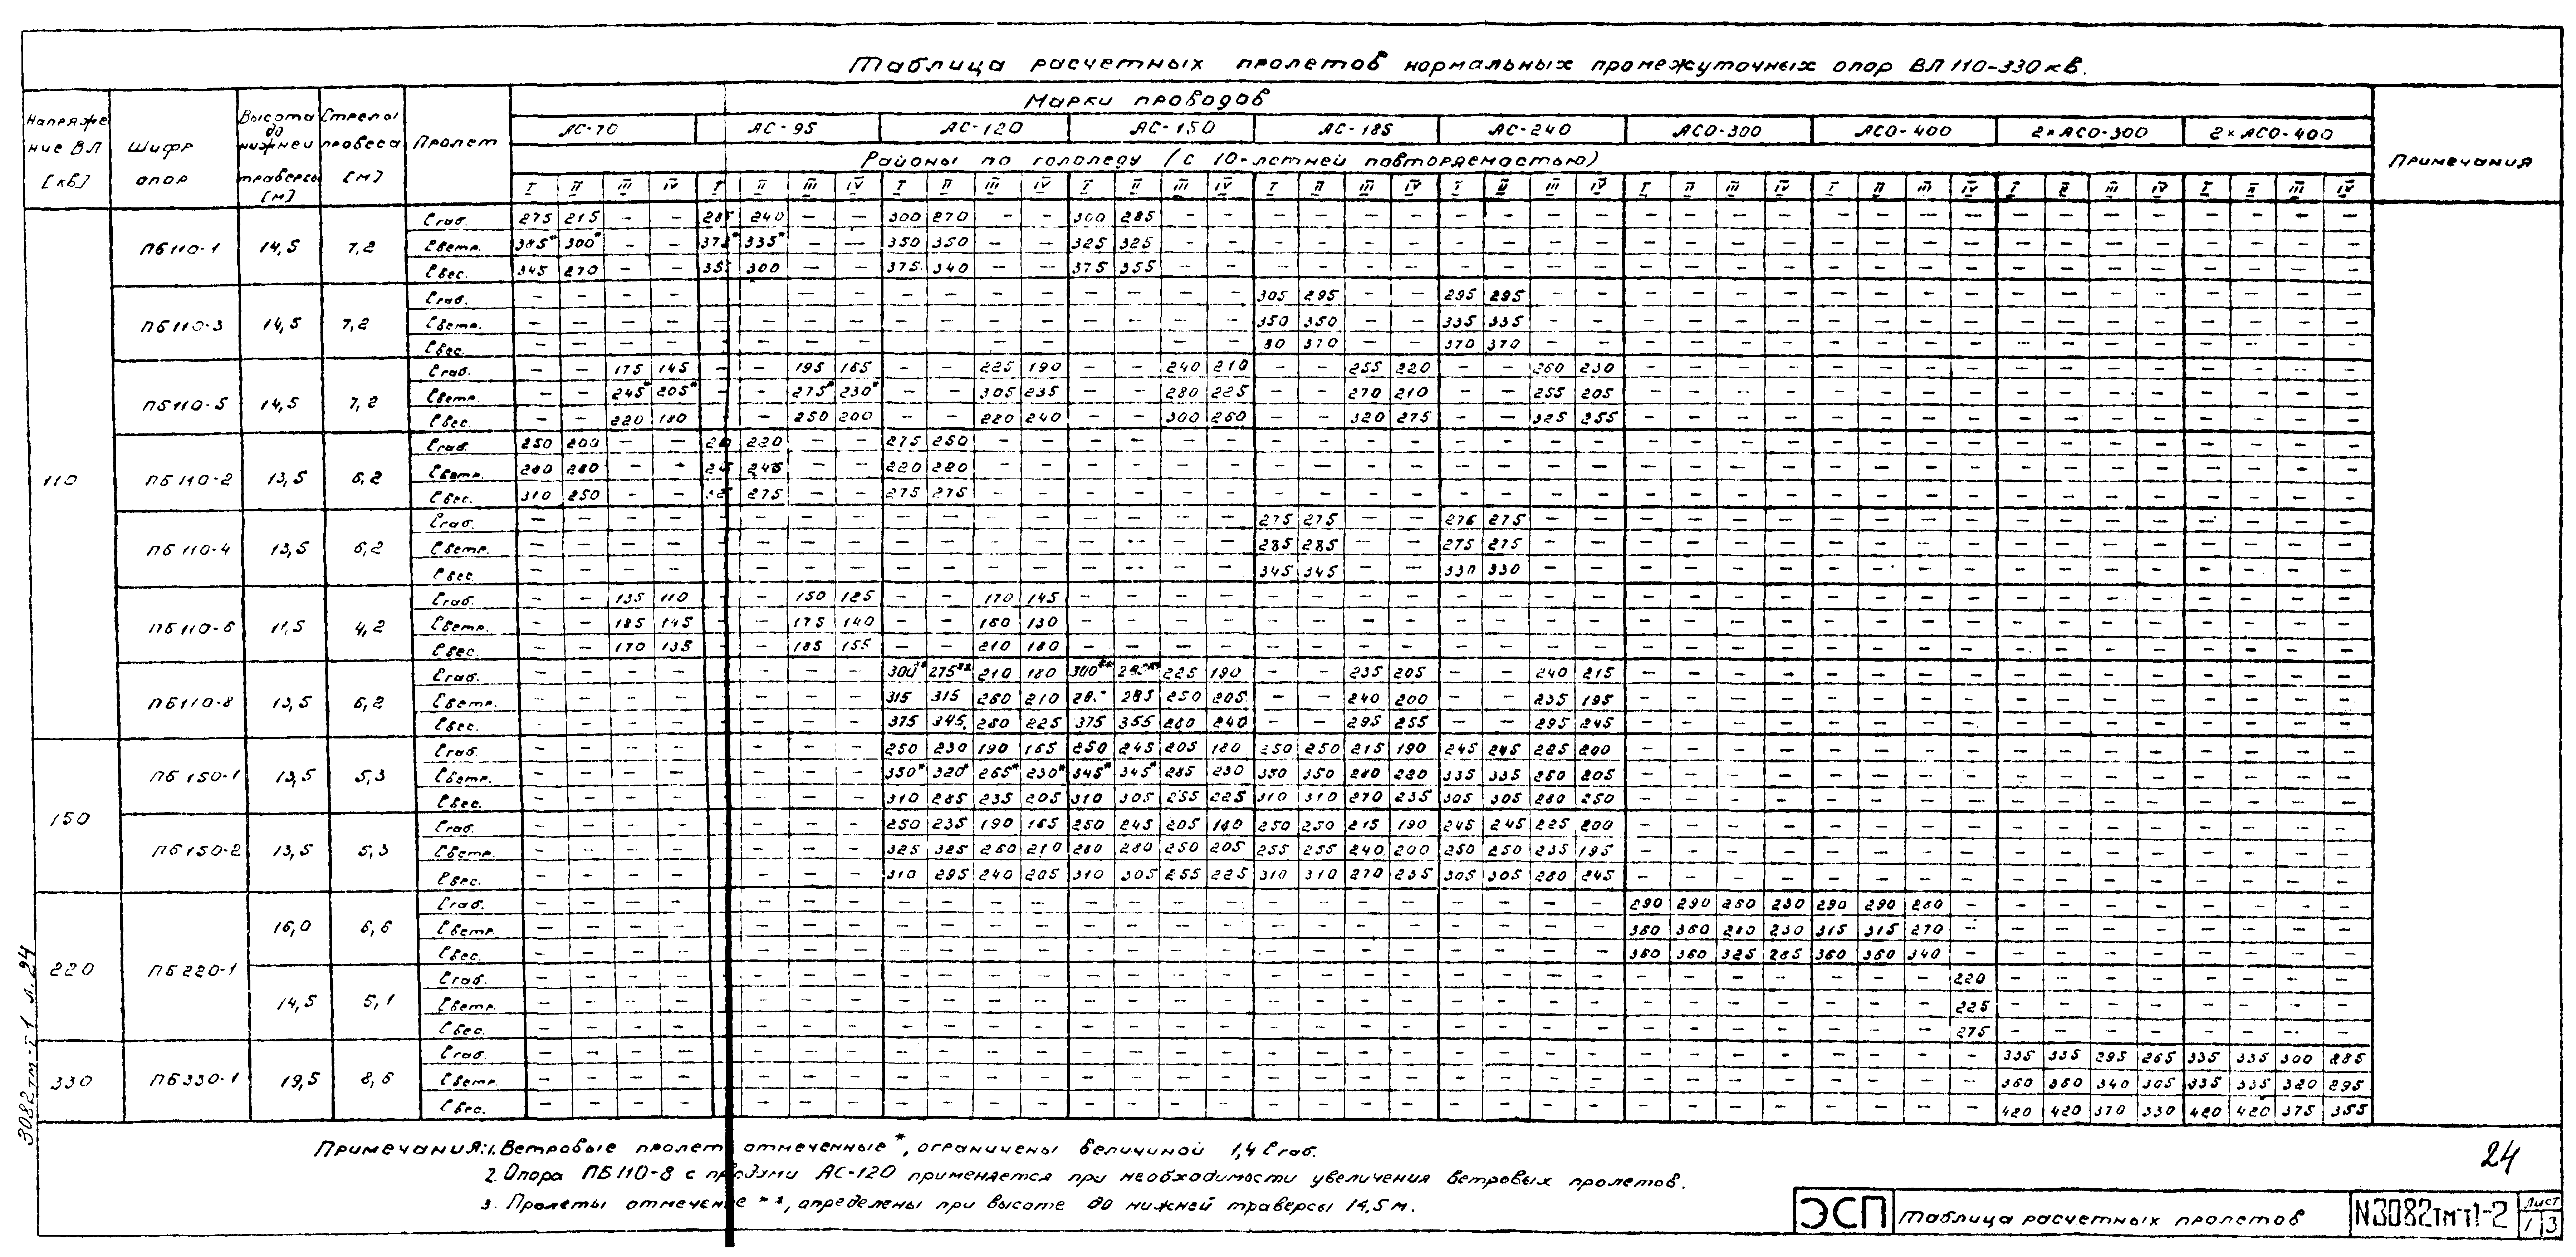 Таблица расчетных пролетов нормальных промежуточных опор ВЛ 110-330 кВ.
Напряжение ВЛ [кВ] Шифр опор Высота до нижней траверсы [м] Стрелы провеса [м] Пролет Марки проводов Примечания
АС-70 АС-95 АС-120 АС-150 АС-185 АС-240 АСО-300 АСО-400 2×АСО-300 2×АСО-400
Районы по гололеду (с 10-летней повторяемостью)
I II III IV I II III IV I II III IV I II III IV I II III IV I II III IV I II III IV I II III IV I II III IV I II III IV
110
ПБ110-1 14,5 7,2
ℓгаб. 275 215 - - 240 - - 300 270 - - 300 285 - -
ℓветр. 385* 300* - - 335* - - 350 350 - - 325 325 - -
ℓвес. 345 270 - - 300 - - 375 340 - - 375 355 - -
ПБ110-3 14,5 7,2
ℓгаб. 305 295 - - 295 295 - -
ℓветр. 350 350 - - 335 335 - -
ℓвес. 80 370 - - 370 370 - -
ПБ110-5 14,5 7,2
ℓгаб. - - 175 145 - - 195 165 - - 225 190 - - 240 210 - - 255 220 - - 260 230
ℓветр. - - 245* 205* - - 275* 230* - - 305 235 - - 280 225 - - 270 210 - - 255 205
ℓвес. - - 220 180 - - 250 200 - - 280 240 - - 300 260 - - 320 275 - - 325 255
ПБ110-2 13,5 6,2
ℓгаб. 250 200 - - 220 - - 275 250 - -
ℓветр. 280 280 - - 245 - - 220 220 - -
ℓвес. 310 250 - - 275 - - 275 275 - -
ПБ110-4 13,5 6,2
ℓгаб. 275 275 - - 275 275 - -
ℓветр. 285 285 - - 275 275 - -
ℓвес. 345 345 - - 330 330 - -
ПБ110-6 11,5 4,2
ℓгаб. - - 135 110 - - 150 125 - - 170 145
ℓветр. - - 185 145 - - 175 140 - - 160 130
ℓвес. - - 170 135 - - 185 155 - - 210 180
ПБ110-8 13,5 6,2
ℓгаб. 300** 275** 210 180 300** 225 190 - - 235 205 - - 240 215
ℓветр. 315 315 260 210 285 250 205 - - 240 200 - - 235 195
ℓвес. 375 345 260 225 375 355 280 240 - - 295 255 - - 295 245
150
ПБ150-1 13,5 5,3
ℓгаб. 250 230 190 165 250 245 205 180 250 250 215 190 245 245 225 200
ℓветр. 350* 320* 265* 230* 345* 345* 285 230 350 350 280 220 335 335 260 205
ℓвес. 310 285 235 205 310 305 255 225 310 310 270 235 305 305 280 250
ПБ150-2 13,5 5,3
ℓгаб. 250 235 190 165 250 245 205 180 250 250 215 190 245 245 225 200
ℓветр. 325 325 260 210 280 280 250 205 255 255 240 200 250 250 235 195
ℓвес. 310 295 240 205 310 305 255 225 310 310 270 235 305 305 280 245
220
ПБ220-1
16,0 6,6
ℓгаб. 290 290 260 230 290 290 260 -
ℓветр. 360 360 280 230 315 315 270 -
ℓвес. 360 360 325 285 360 360 340 -
14,5 5,1
ℓгаб. 220
ℓветр. 225
ℓвес. 275
330
ПБ330-1 19,5 8,6
ℓгаб. 335 335 295 265 335 335 300 285
ℓветр. 360 360 340 305 335 335 320 295
ℓвес. 420 420 370 330 420 420 375 355
Примечания: 1. Ветровые пролет отмеченные *, ограничены величиной 1,4 ℓгаб.
2. Опора ПБ110-8 с АС-120 применяется при необходимости увеличения ветровых пролетов.
3. Пролеты **, определены при высоте до нижней траверсы 14,5 м.
3082тм-т1 л.24
24
ЭСП Таблица расчетных пролетов N3082тм-т1-2 Лист 1 3